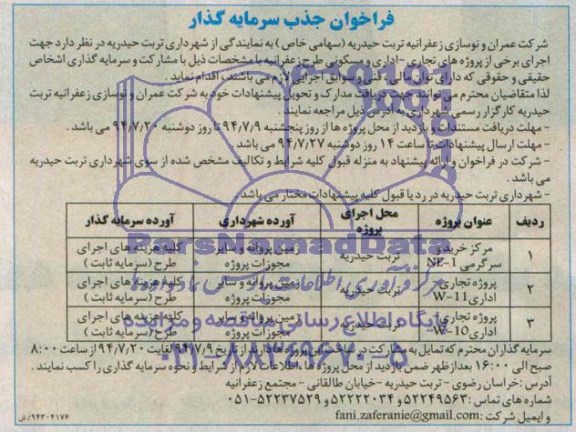 فراخوان جذب سرمایه گذار
شرکت عمران و نوسازی زعفرانیه تربت حیدریه (سهامی خاص) به نمایندگی از شهرداری تربت حیدریه در نظر دارد جهت
اجرای برخی از پروژه های تجاری -اداری و مسکونی طرح زعفرانیه با مشخصات ذیل با مشارکت و سرمایه گذاری اشخاص
حقیقی و حقوقی که دارای توان مالی و سوابق اجرایی لازم می باشند ، اقدام نماید .
لذا متقاضیان محترم می توانند جهت دریافت مدارک و تحویل پیشنهادات خود به شرکت عمران و نوسازی زعفرانیه تربت
حیدریه کارگزار رسمی شهرداری به آدرس ذیل مراجعه نمایند .
- مهلت دریافت مستندات و بازدید از محل پروژه ها از روز پنجشنبه ۹۴/۷/۹ تا روز دوشنبه ۹۴/۷/۲۰ می باشد .
- مهلت ارسال پیشنهادات تا ساعت ۱۴ روز دوشنبه ۹۴/۷/۲۷ می باشد .
- شرکت در فراخوان و ارائه پیشنهاد به منزله قبول کلیه شرایط و تکالیف مشخص شده از سوی شهرداری تربت حیدریه
می باشد .
- شهرداری تربت حیدریه در رد یا قبول کلیه پیشنهادات مختار می باشد .
ردیف عنوان پروژه محل اجرای پروژه آورده شهرداری آورده سرمایه گذار
۱ مرکز خرید و سرگرمی NE-1 تربت حیدریه زمین پروانه و سایر مجوزات پروژه کلیه هزینه های اجرای طرح (سرمایه ثابت )
۲ پروژه تجاری - اداری W-11 تربت حیدریه زمین پروانه و سایر مجوزات پروژه کلیه هزینه های اجرای طرح (سرمایه ثابت )
۳ پروژه تجاری - اداری W-10 تربت حیدریه زمین پروانه و سایر مجوزات پروژه کلیه هزینه های اجرای طرح (سرمایه ثابت )
ParsNamadData
مرکز فرآوری اطلاعات پارس نماد داده ها
پایگاه اطلاع رسانی مناقصه و مزایده
۰۲۱-۸۸۳۴۹۶۷۰-۵
سرمایه گذاران محترم که تمایل به مشارکت در ساخت این پروژه ها دارند از تاریخ ۹۴/۷/۹ لغایت ۹۴/۷/۲۰ از ساعت ۸:۰۰
صبح الی ۱۶:۰۰ بعدازظهر ضمن بازدید از محل پروژه ها اطلاعات لازم از شرایط و نحوه سرمایه گذاری را کسب نمایند .
آدرس : خراسان رضوی - تربت حیدریه - خیابان طالقانی - مجتمع زعفرانیه
شماره های تماس : ۵۲۲۴۹۵۶۳ و ۵۲۲۲۲۰۳۴ و ۵۲۲۳۷۵۲۹-۰۵۱
و ایمیل شرکت : fani.zaferanie@gmail.com
۹۴۳۰۴۱۷۶/ش